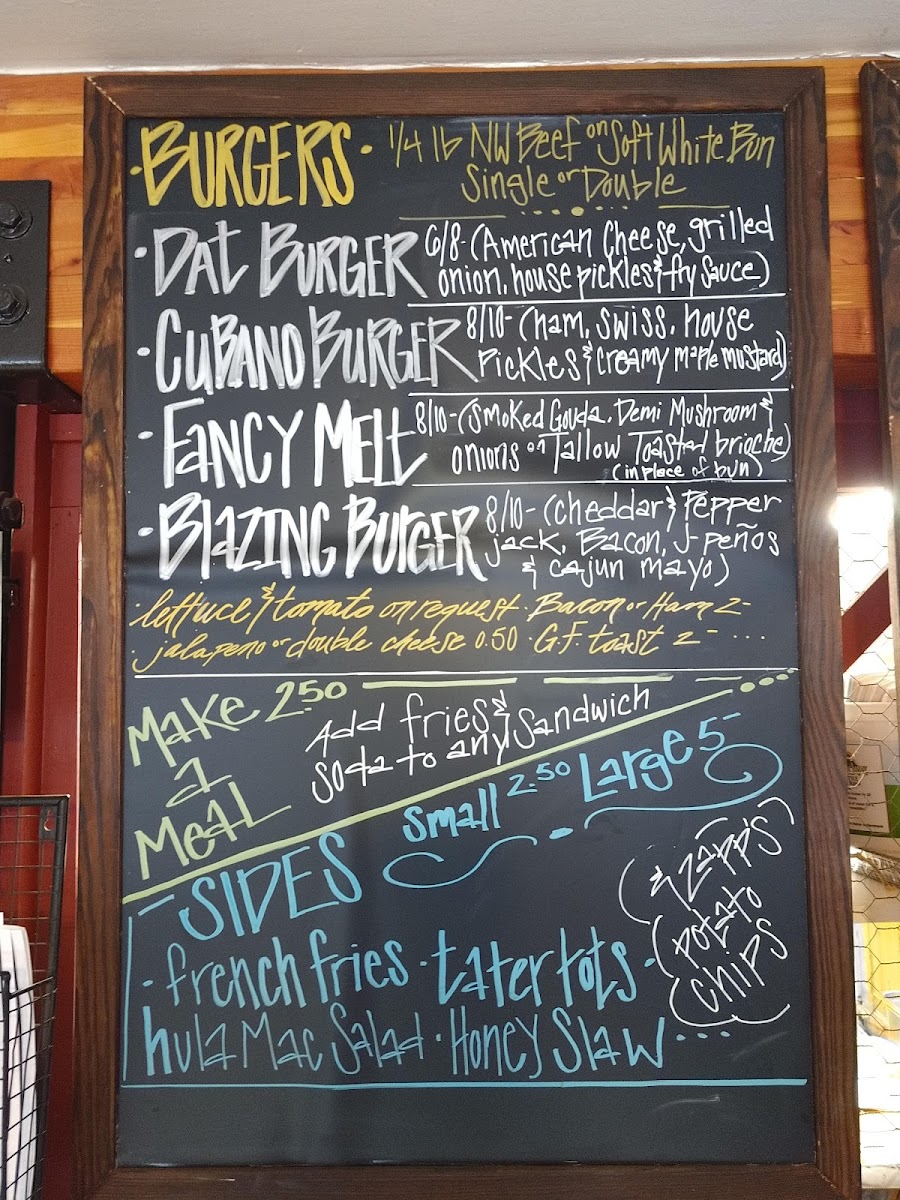 ·BURGERS· 1/4 lb NW Beef on Soft White Bun
Single or Double
·Dat Burger 6/8- (American Cheese, grilled
onion, house pickles & fry sauce)
·Cubano Burger 8/10- (ham, swiss, house
pickles & creamy maple mustard)
·Fancy Melt 8/10- (Smoked Gouda, Demi Mushroom &
onions on Tallow Toasted brioche)
(in place of bun)
·Blazing Burger 8/10- (cheddar & Pepper
jack, Bacon, J-peños
& cajun mayo)
·lettuce & tomato on request· Bacon or Ham 2-
·jalapeno or double cheese 0.50 · G.F. toast 2- ....
Make 2.50
a
Meal
Add fries &
soda to any Sandwich
SIDES Small 2.50 Large 5-
·french fries ·tater tots·
hula Mac Salad · Honey Slaw ....
& Zapp's
potato
chips